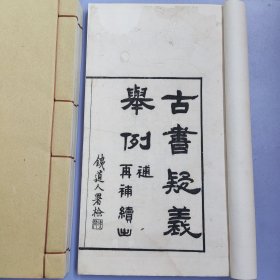 古書疑義
舉例補
再補續出
鐵道人署檢